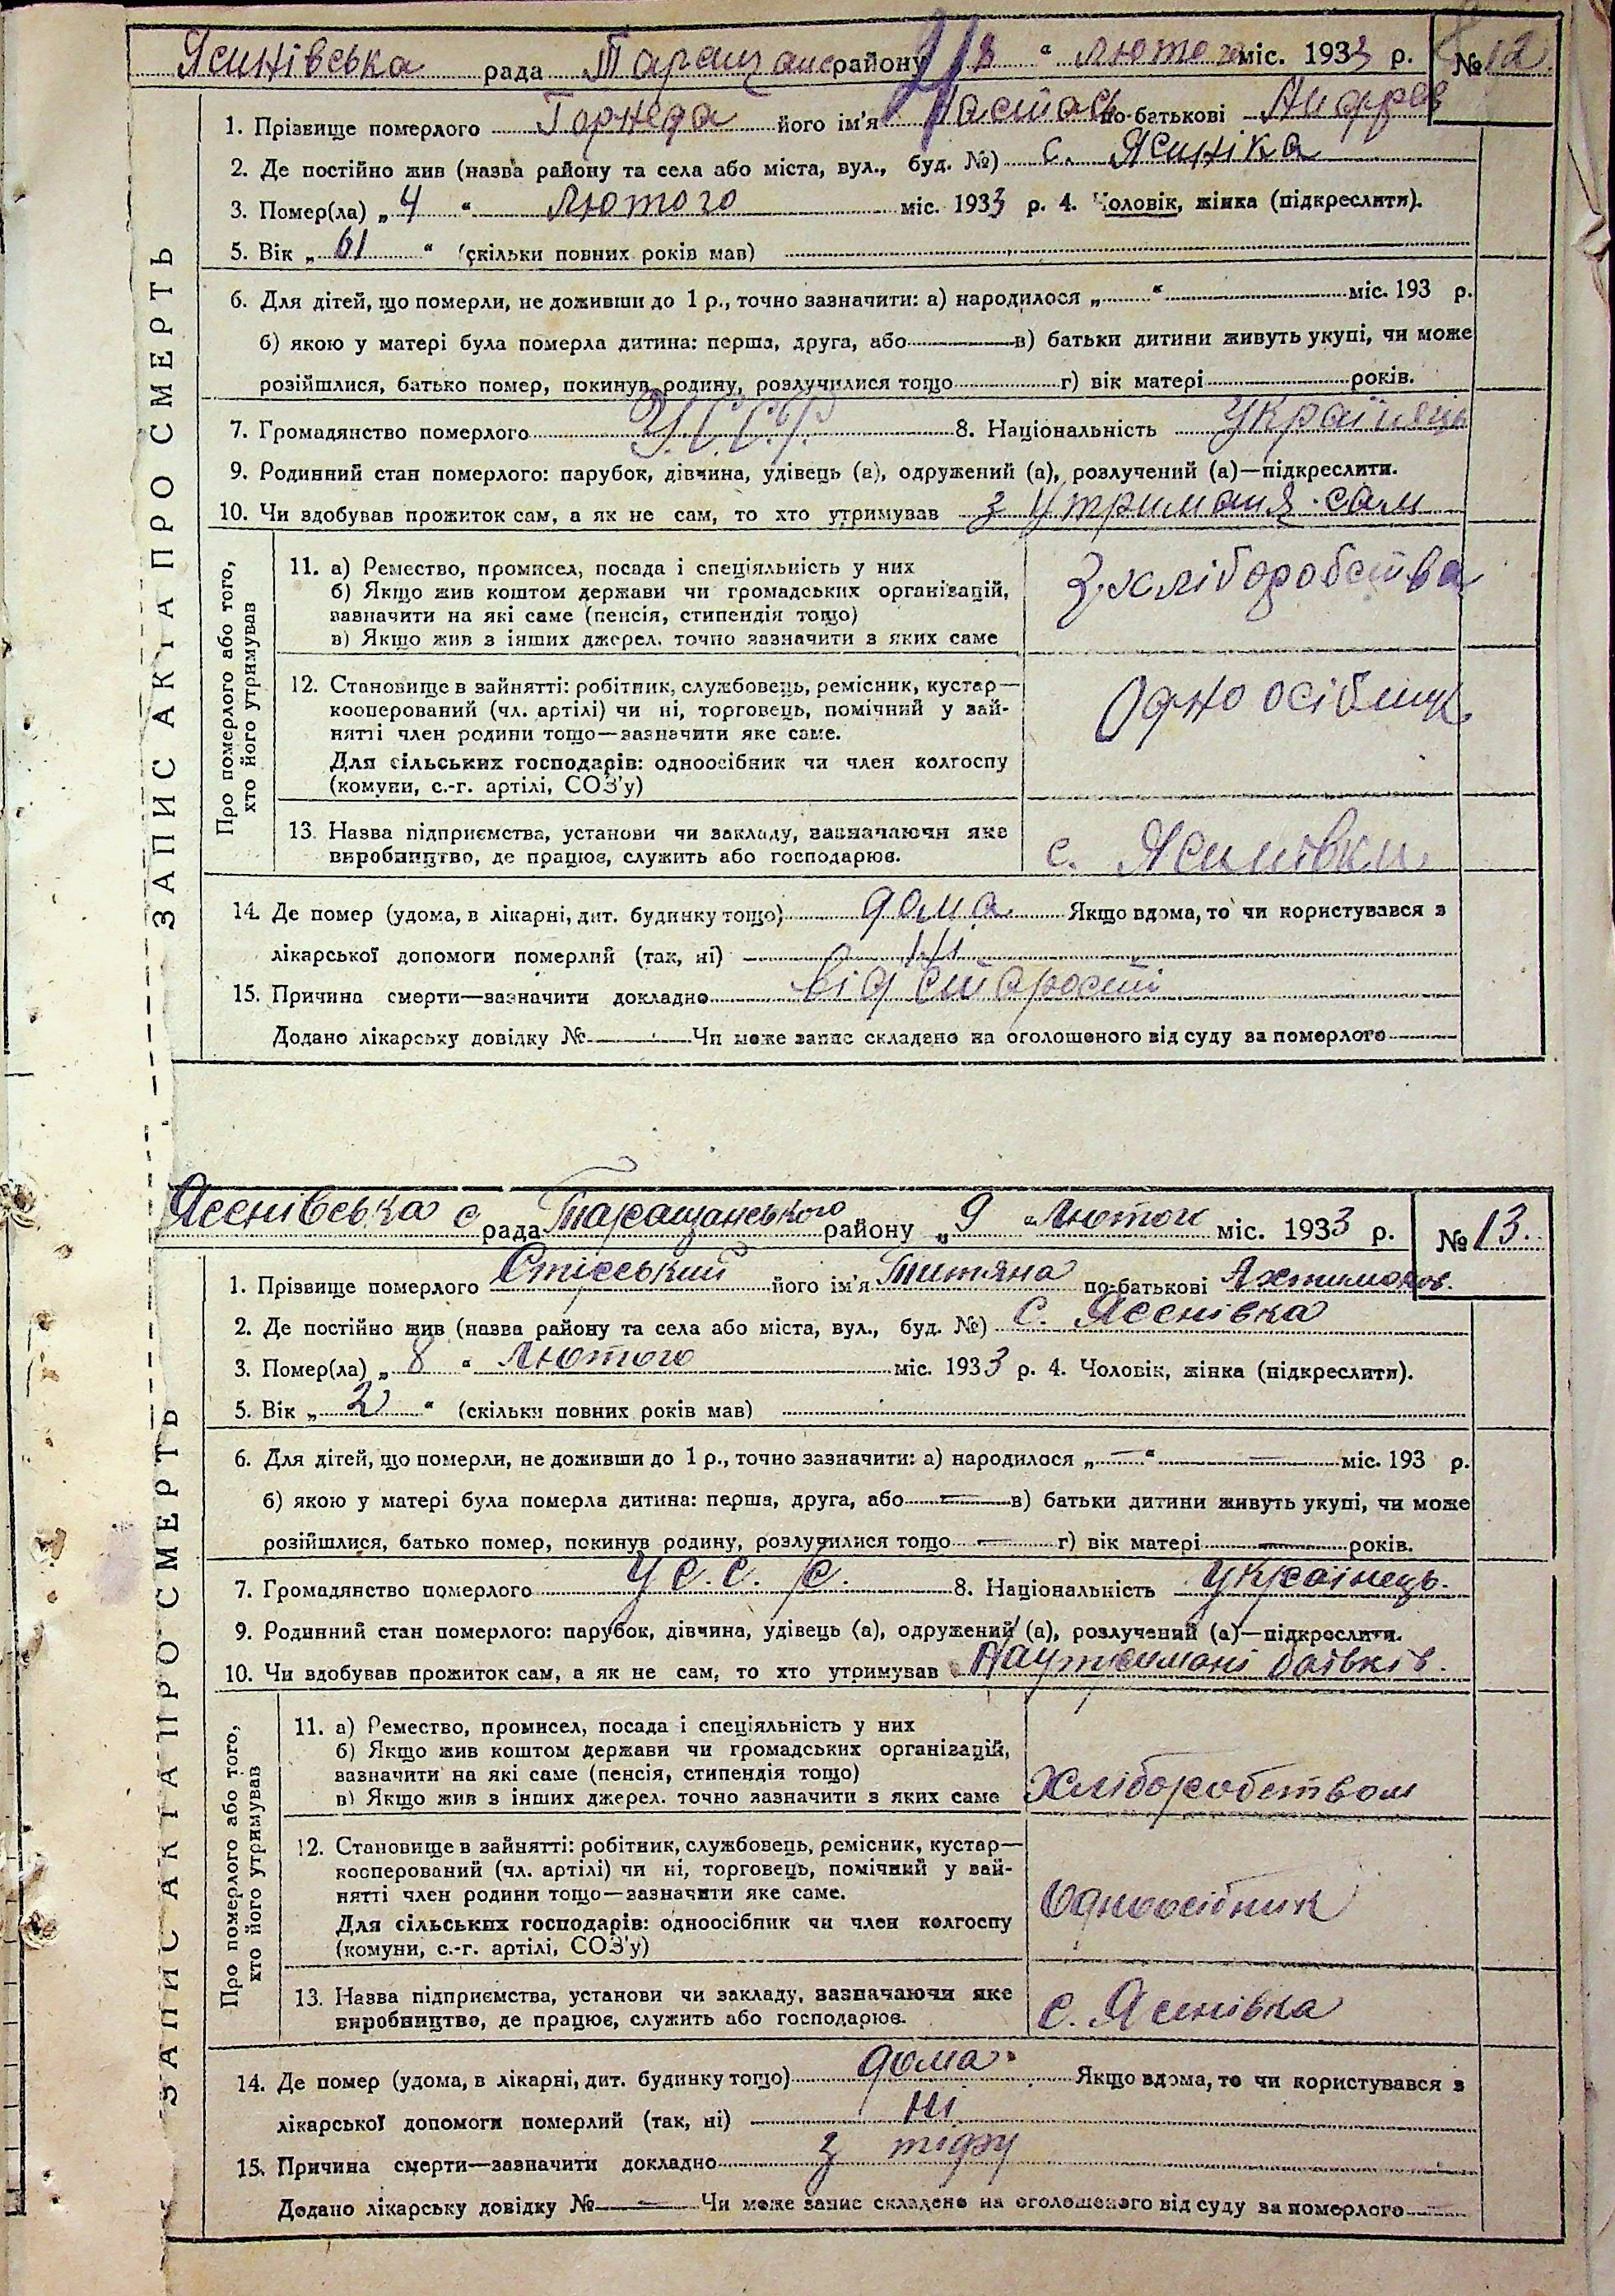 Ясинівська рада Таращанс району 8 " лютого міс. 1933 р. № 12
1. Прізвище померлого Горнеда його ім'я по-батькові Андрев
2. Де постійно жив (назва району та села або міста, вул., буд. №) с. Ясиніка
3. Помер(ла) „ 4 " лютого міс. 1933 р. 4. Чоловік, жінка (підкреслити).
5. Вік „ 61 " (скільки повних років мав)
6. Для дітей, що померли, не доживши до 1 р., точно зазначити: а) народилося „ " міс. 193 р.
б) якою у матері була померла дитина: перша, друга, або в) батьки дитини живуть укупі, чи може
розійшлися, батько помер, покинув родину, розлучилися тощо г) вік матері років.
7. Громадянство померлого У.С.С.Р. 8. Національність Українець
9. Родинний стан померлого: парубок, дівчина, удівець (а), одружений (а), розлучений (а)—підкреслити.
10. Чи здобував прожиток сам, а як не сам, то хто утримував з утриманя сам
ЗАПИС АКТА ПРО СМЕРТЬ
Про померлого або того,
хто його утримував
11. а) Ремество, промисел, посада і спеціяльність у них
б) Якщо жив коштом держави чи громадських організацій,
зазначити на які саме (пенсія, стипендія тощо)
в) Якщо жив з інших джерел. точно зазначити з яких саме
З хліборобства
12. Становище в зайнятті: робітник, службовець, ремісник, кустар—
кооперований (чл. артілі) чи ні, торговець, помічний у зай-
нятті член родини тощо—зазначити яке саме.
Для сільських господарів: одноосібник чи член колгоспу
(комуни, с.-г. артілі, СОЗ'у)
Одноосібник
13. Назва підприємства, установи чи закладу, зазначаючи яке
виробництво, де працює, служить або господарює.
с. Ясинівки
14. Де помер (удома, в лікарні, дит. будинку тощо) дома Якщо вдома, то чи користувався з
лікарської допомоги померлий (так, ні) Ні
15. Причина смерти—зазначити докладно від старости
Додано лікарську довідку № Чи може запис складено на оголошеного від суду за померлого
Ясенівська с рада Таращанського району „ 9 " Лютого міс. 1933 р. № 13.
1. Прізвище померлого його ім'я Титяна по-батькові
2. Де постійно жив (назва району та села або міста, вул., буд. №) С. Ясенівка
3. Помер(ла) „ 8 " Лютого міс. 1933 р. 4. Чоловік, жінка (підкреслити).
5. Вік „ 2 " (скільки повних років мав)
6. Для дітей, що померли, не доживши до 1 р., точно зазначити: а) народилося „ — " — міс. 193 р.
б) якою у матері була померла дитина: перша, друга, або — в) батьки дитини живуть укупі, чи може
розійшлися, батько помер, покинув родину, розлучилися тощо — г) вік матері — років.
7. Громадянство померлого У С. С. Р. 8. Національність Українець.
9. Родинний стан померлого: парубок, дівчина, удівець (а), одружений (а), розлучений (а)—підкреслити.
10. Чи здобував прожиток сам, а як не сам, то хто утримував На утримані батьків.
ЗАПИС АКТА ПРО СМЕРТЬ
Про померлого або того,
хто його утримував
11. а) Ремество, промисел, посада і спеціяльність у них
б) Якщо жив коштом держави чи громадських організацій,
зазначити на які саме (пенсія, стипендія тощо)
в) Якщо жив з інших джерел. точно зазначити з яких саме
Хліборобством
12. Становище в зайнятті: робітник, службовець, ремісник, кустар—
кооперований (чл. артілі) чи ні, торговець, помічний у зай-
нятті член родини тощо—зазначити яке саме.
Для сільських господарів: одноосібник чи член колгоспу
(комуни, с.-г. артілі, СОЗ'у)
Одноосібник
13. Назва підприємства, установи чи закладу, зазначаючи яке
виробництво, де працює, служить або господарює.
С. Ясенівка
14. Де помер (удома, в лікарні, дит. будинку тощо) дома Якщо вдома, то чи користувався з
лікарської допомоги померлий (так, ні) Ні
15. Причина смерти—зазначити докладно з тіфу
Додано лікарську довідку № — Чи може запис складено на оголошеного від суду за померлого —